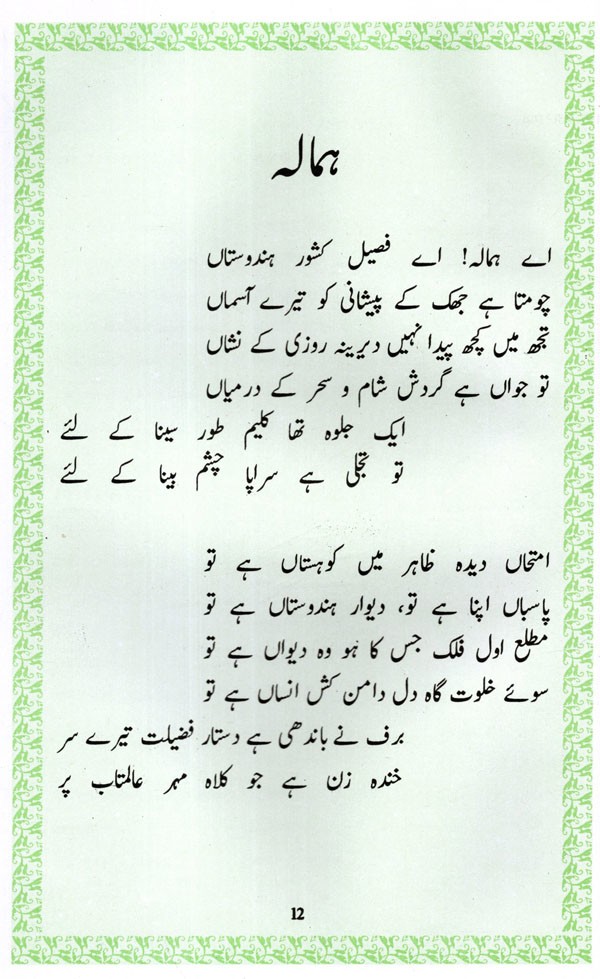 ہمالہ
اے ہمالہ! اے فصیل کشور ہندوستاں
چومتا ہے جھک کے پیشانی کو تیرے آسماں
تجھ میں کچھ پیدا نہیں دیرینہ روزی کے نشاں
تو جواں ہے گردش شام و سحر کے درمیاں
ایک جلوہ تھا کلیم طور سینا کے لئے
تو تجلی ہے سراپا چشم بینا کے لئے
امتحاں دیدہ ظاہر میں کوہستاں ہے تو
پاسباں اپنا ہے تو، دیوار ہندوستاں ہے تو
مطلع اول فلک جس کا ہو وہ دیواں ہے تو
سوئے خلوت گاہ دل دامن کش انساں ہے تو
برف نے باندھی ہے دستار فضیلت تیرے سر
خندہ زن ہے جو کلاہ مہر عالمتاب پر
12